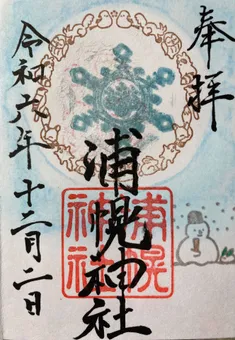 奉拝
浦幌神社
浦幌神社
令和六年十二月二日